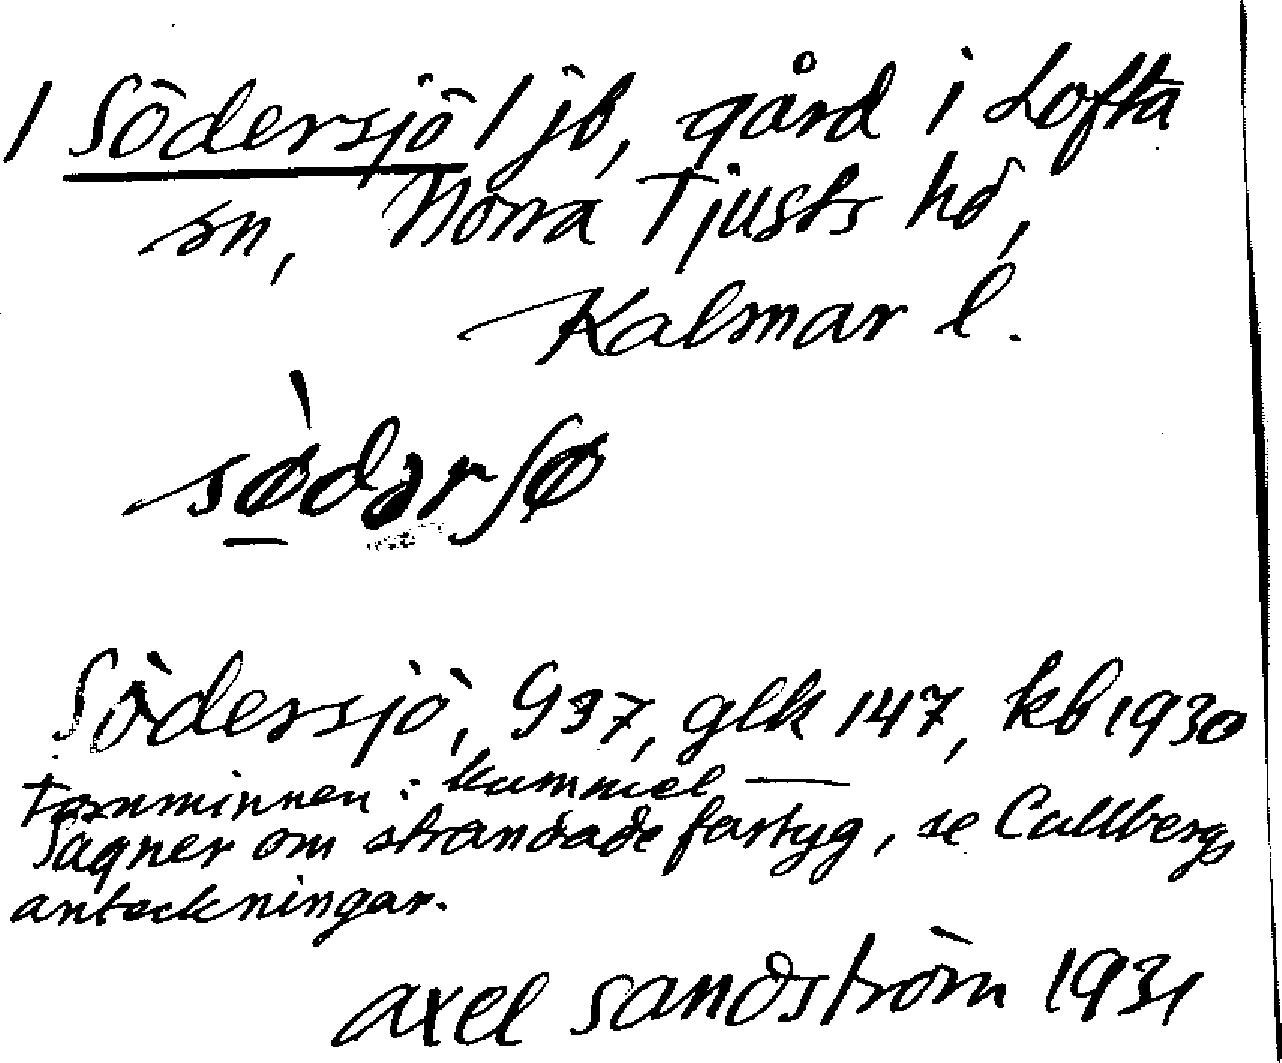 / Södersjö / jb, gård i Lofta
sn, Norra Tjusts hd,
Kalmar l.
sø̀dərʃø
Södersjö, G37, glk 147, kb 1930
Fornminnen: kummel —
Sägner om strandade fartyg, se Callbergs
anteckningar.
Axel Sandström 1931